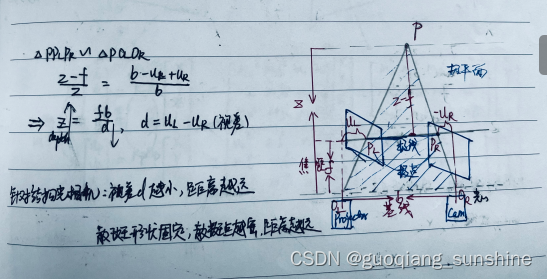 △PPLPR ∽ △POLOR
z-f/z = b-uL+uR/b
⇒ z = fb/d , d = uL-uR (视差)
depth
针对结构光相机:视差d越小,距离越远
散斑形状固定,散斑越密,距离越远
P
极平面
z
z-f
uL
-uR
PL
PR
极线
极点
焦距
f
OL
OR
b
基线
Projector
Cam
CSDN @guoqiang_sunshine